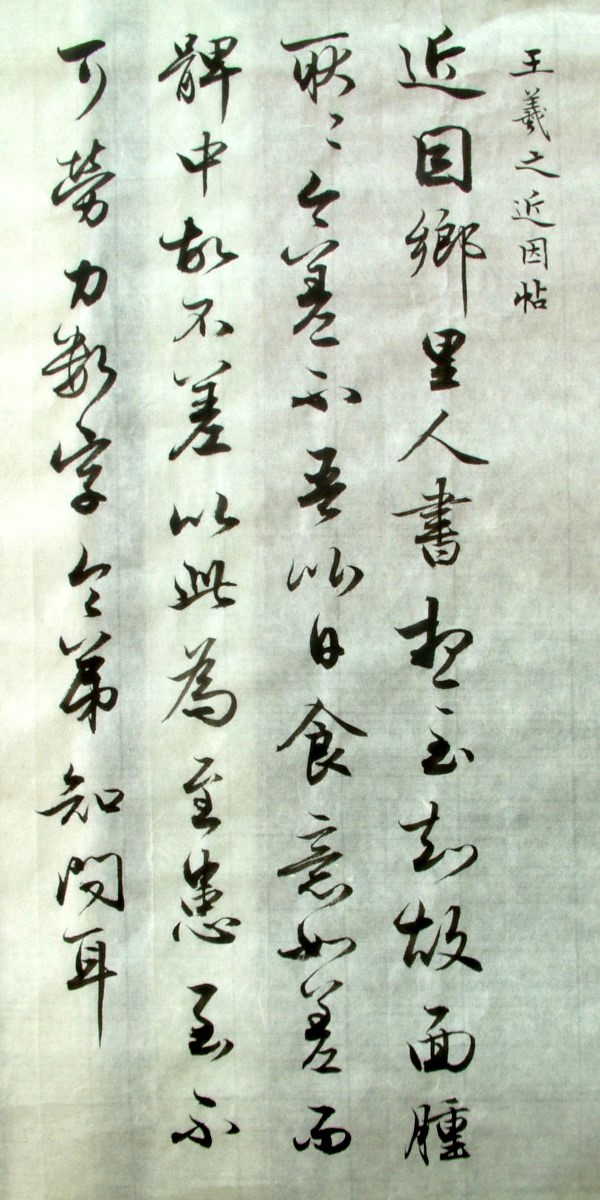 王羲之近因帖
近因鄉里人書想至知故面腫
耿〻今差不吾比日食意如差而
髀中故不差以此為至患至不
可勞力數字令弟知問耳